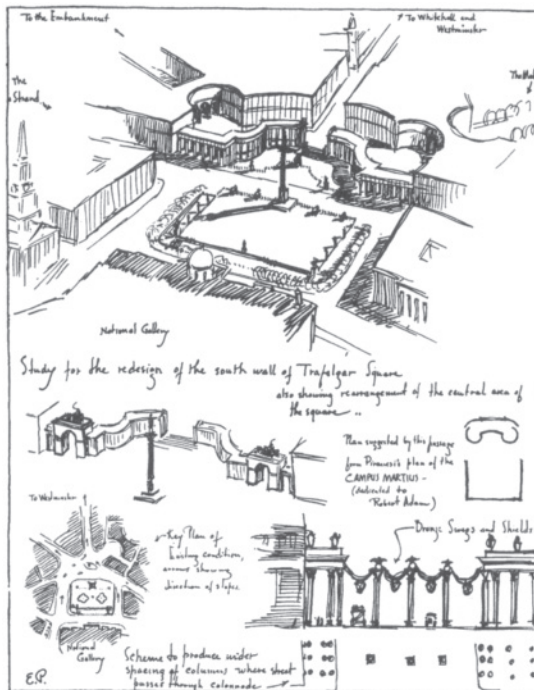 To the Embankment
To Whitehall and
Westminster
The
Strand
The Mall
National Gallery
Study for the redesign of the south wall of Trafalgar Square
also showing rearrangement of the central area of
the square ..
Plan suggested by this passage
from Piranesi's plan of the
CAMPUS MARTIUS -
(dedicated to
Robert Adam)
To Westminster
Key Plan of
Existing condition,
arrows showing
direction of slopes.
National
Gallery
Bronze Swags and Shields
Scheme to produce wider
spacing of columns where street
passes through colonnade
E.P.